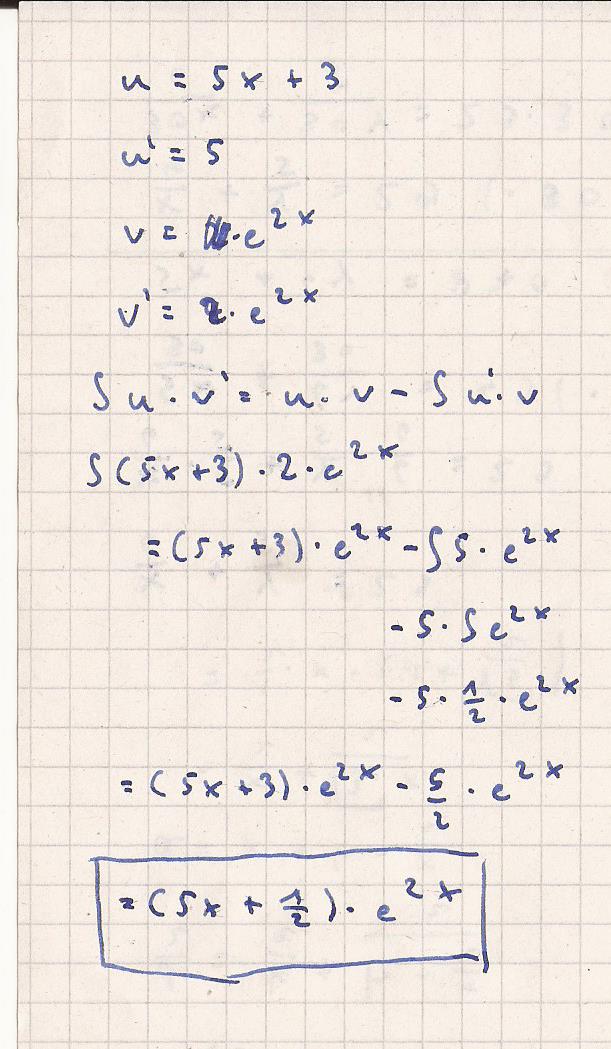 u = 5x + 3
u' = 5
v = · e^2x
v' = 2 · e^2x
∫ u · v' = u · v - ∫ u' · v
∫ (5x+3) · 2 · e^2x
= (5x+3) · e^2x - ∫ 5 · e^2x
- 5 · ∫ e^2x
- 5 · 1/2 · e^2x
= (5x+3) · e^2x - 5/2 · e^2x
= (5x + 1/2) · e^2x